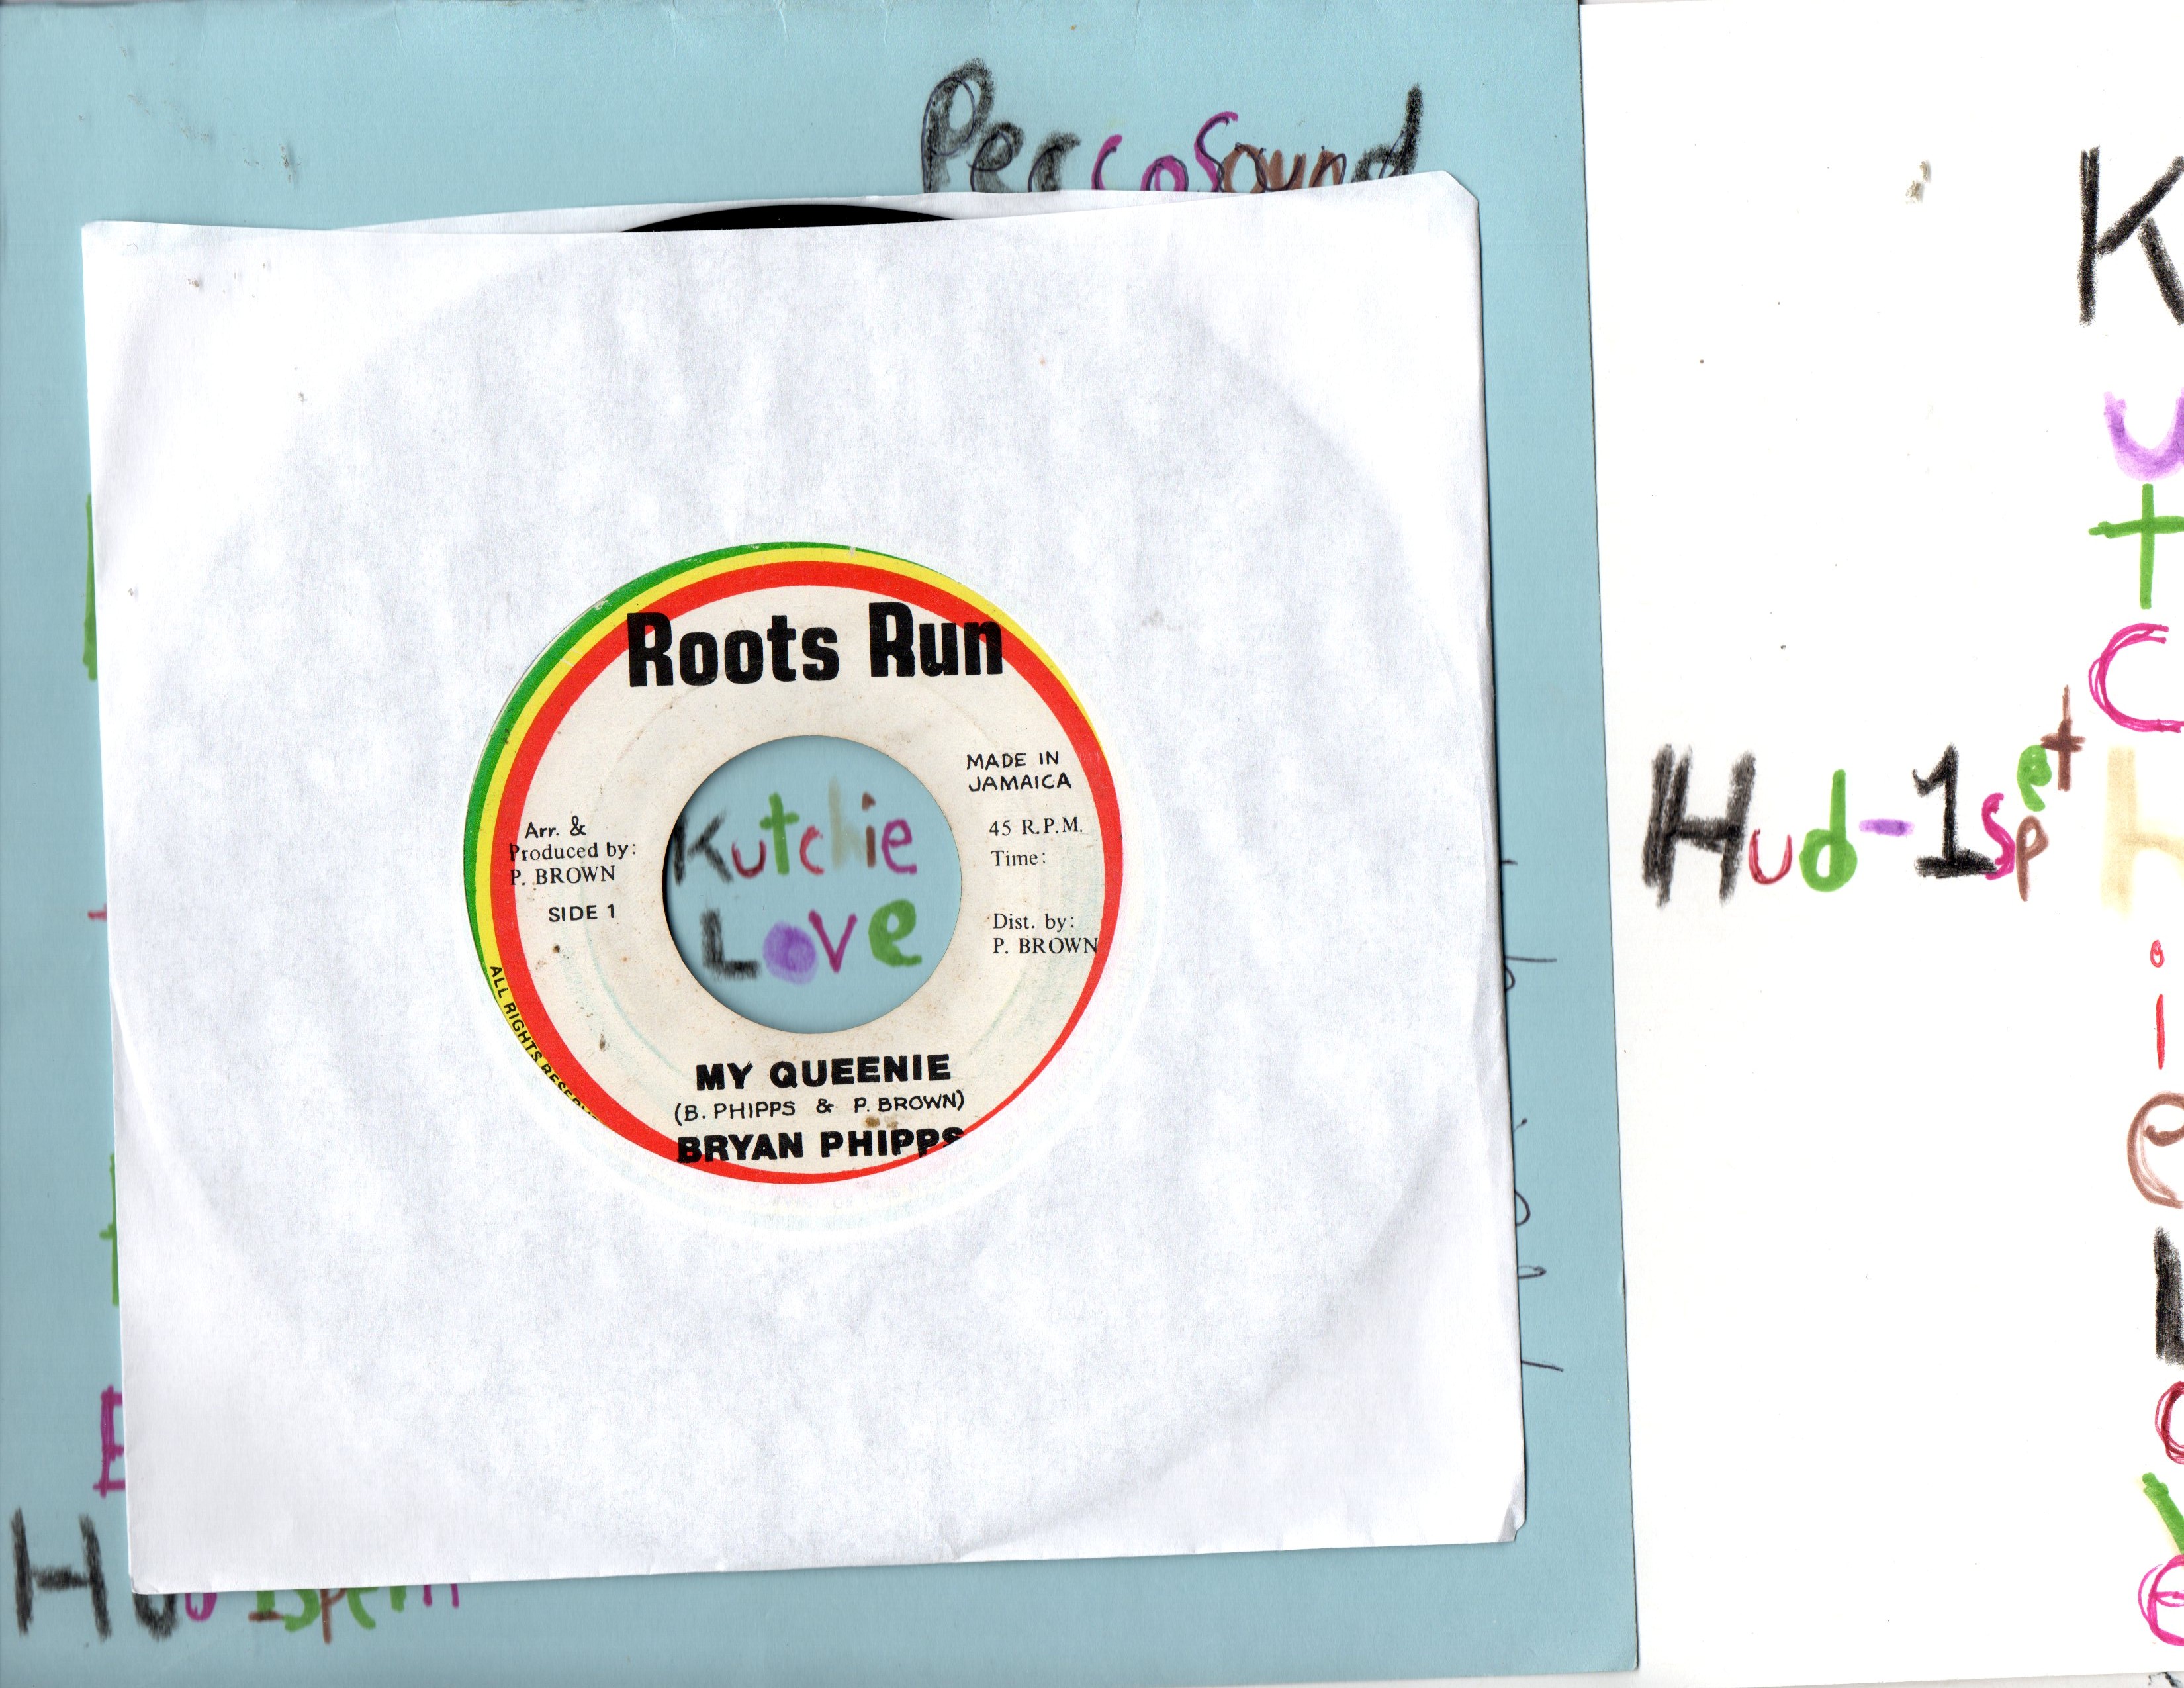 PeccoSound
Roots Run
MADE IN
JAMAICA
45 R.P.M.
Time:
Arr. &
Produced by:
P. BROWN
SIDE 1
Dist. by:
P. BROWN
Kutchie
Love
ALL RIGHTS RESERV
MY QUEENIE
(B. PHIPPS & P. BROWN)
BRYAN PHIPPS
Hud-1spet
Kutchie Love